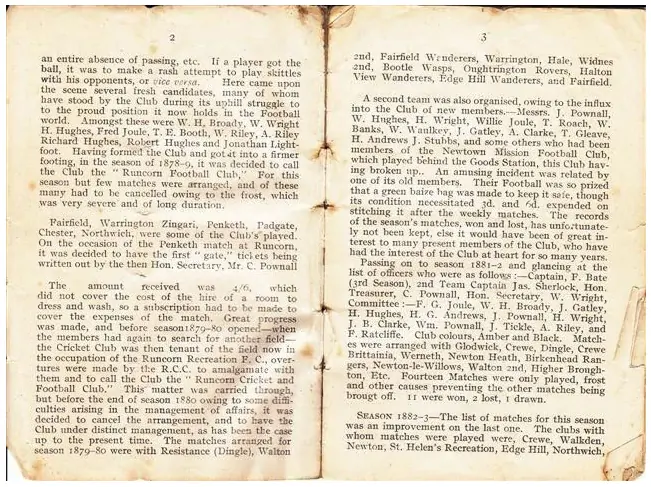 2
an entire absence of passing, etc. If a player got the
ball, it was to make a rash attempt to play skittles
with his opponents, or vice versa. Here came upon
the scene several fresh candidates, many of whom
have stood by the Club during its uphill struggle to
to the proud position it now holds in the Football
world. Amongst these were W. H. Broady, W. Wright
H. Hughes, Fred Joule, T. E. Booth, W. Riley, A. Riley
Richard Hughes, Robert Hughes and Jonathan Light-
foot. Having formed the Club and got it into a firmer
footing, in the season of 1878-9, it was decided to call
the Club the "Runcorn Football Club," For this
season but few matches were arranged, and of these
many had to be cancelled owing to the frost, which
was very severe and of long duration.
Fairfield, Warrington Zingari, Penketh, Padgate,
Chester, Northwich, were some of the Club's played.
On the occasion of the Penketh match at Runcorn,
it was decided to have the first "gate," tickets being
written out by the then Hon. Secretary, Mr. C. Pownall
The amount received was 4/6, which
did not cover the cost of the hire of a room to
dress and wash, so a subscription had to be made to
cover the expenses of the match. Great progress
was made, and before season 1879-80 opened—when
the members had again to search for another field—
the Cricket Club was then tenant of the field now in
the occupation of the Runcorn Recreation F. C., over-
tures were made by the R.C.C. to amalgamate with
them and to call the Club the "Runcorn Cricket and
Football Club." This matter was carried through,
but before the end of season 1880 owing to some diffi-
culties arising in the management of affairs, it was
decided to cancel the arrangement, and to have the
Club under distinct management, as has been the case
up to the present time. The matches arranged for
season 1879-80 were with Resistance (Dingle), Walton
3
2nd, Fairfield Wanderers, Warrington, Hale, Widnes
2nd, Bootle Wasps, Oughtrington Rovers, Halton
View Wanderers, Edge Hill Wanderers, and Fairfield.
A second team was also organised, owing to the influx
into the Club of new members.—Messrs. J. Pownall,
W. Hughes, H. Wright, Willie Joule, T. Roach, W.
Banks, W. Waulkey, J. Gatley, A. Clarke, T. Gleave,
H. Andrews J. Stubbs, and some others who had been
members of the Newtown Mission Football Club,
which played behind the Goods Station, this Club hav-
ing broken up.. An amusing incident was related by
one of its old members. Their Football was so prized
that a green baize bag was made to keep it safe, though
its condition necessitated 3d. and 6d. expended on
stitching it after the weekly matches. The records
of the season's matches, won and lost, has unfortunate-
ly not been kept, else it would have been of great in-
terest to many present members of the Club, who have
had the interest of the Club at heart for so many years.
Passing on to season 1881-2 and glancing at the
list of officers who were as follows :—Captain, F. Bate
(3rd Season), 2nd Team Captain Jas. Sherlock, Hon.
Treasurer, C. Pownall, Hon. Secretary, W. Wright,
Committee :—F. G. Joule, W. H. Broady, J. Gatley,
H. Hughes, H. G. Andrews, J. Pownall, H. Wright,
J. B. Clarke, Wm. Pownall, J. Tickle, A. Riley, and
F. Ratcliffe. Club colours, Amber and Black. Match-
es were arranged with Glodwick, Crewe, Dingle, Crewe
Brittainia, Werneth, Newton Heath, Birkenhead Ran-
gers, Newton-le-Willows, Walton 2nd, Higher Brough-
ton, Etc. Fourteen Matches were only played, frost
and other causes preventing the other matches being
brougt off. 11 were won, 2 lost, 1 drawn.
SEASON 1882-3—The list of matches for this season
was an improvement on the last one. The clubs with
whom matches were played were, Crewe, Walkden,
Newton, St. Helen's Recreation, Edge Hill, Northwich,